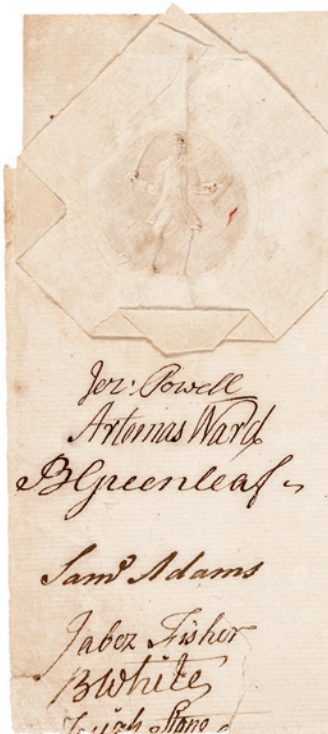 Jer: Powell
Artemas Ward
B Greenleaf
Saml Adams
Jabez Fisher
B White
Stone